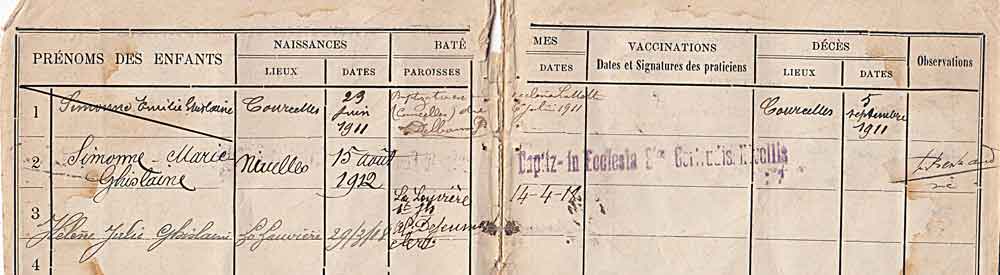 PRÉNOMS DES ENFANTS
NAISSANCES
LIEUX
DATES
BATÊ
PAROISSES
MES
DATES
VACCINATIONS
Dates et Signatures des praticiens
DÉCÈS
LIEUX
DATES
Observations
1
Simonne Emilie Ghislaine
Courcelles
23
juin
1911
(Courcelles)
1911
Courcelles
5
septembre
1911
2
Simonne - Marie
Ghislaine
Nivelles
15 août
1912
Baptiz- in Ecclesia Stae Gertrudis. Nivellis
3
Hélène Julie Ghislaine
La Louvière
29/3/18
La Louvière
14-4-18
4